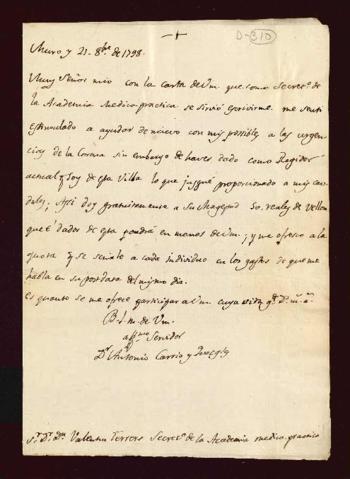 +
D-310
Muro y 21. 8bre de 1798.
Muy Señor mio con la carta de Vm. que como Secreto. de
la Academia Medico-practica se sirvió escrivirme me senti
estimulado a ayudar de nuevo con mis posibles, a las urgen-
cias de la Corona sin embargo de haver dado como Regidor
actual q. soy de esta Villa lo que jusgué proporcionado a mis cau-
dales; Assi doy promtamente a Su Magestad 50. reales de Vellon
que dador de esta pondrá en manos de Vm.; y me ofresco a la
quota q. se señale a cada individuo en los gastos de que me
habla en su postdata del mismo dia.
Es quanto se me ofrece participar a Vm. cuya vida g.e D.s m.s a.s
B. l. m. de Vm.
aff.mo Servidor
D.r Antonio Carrio y
S.r D.r D.n Valentin Ferrers Secreto. de la Academia medico-practica